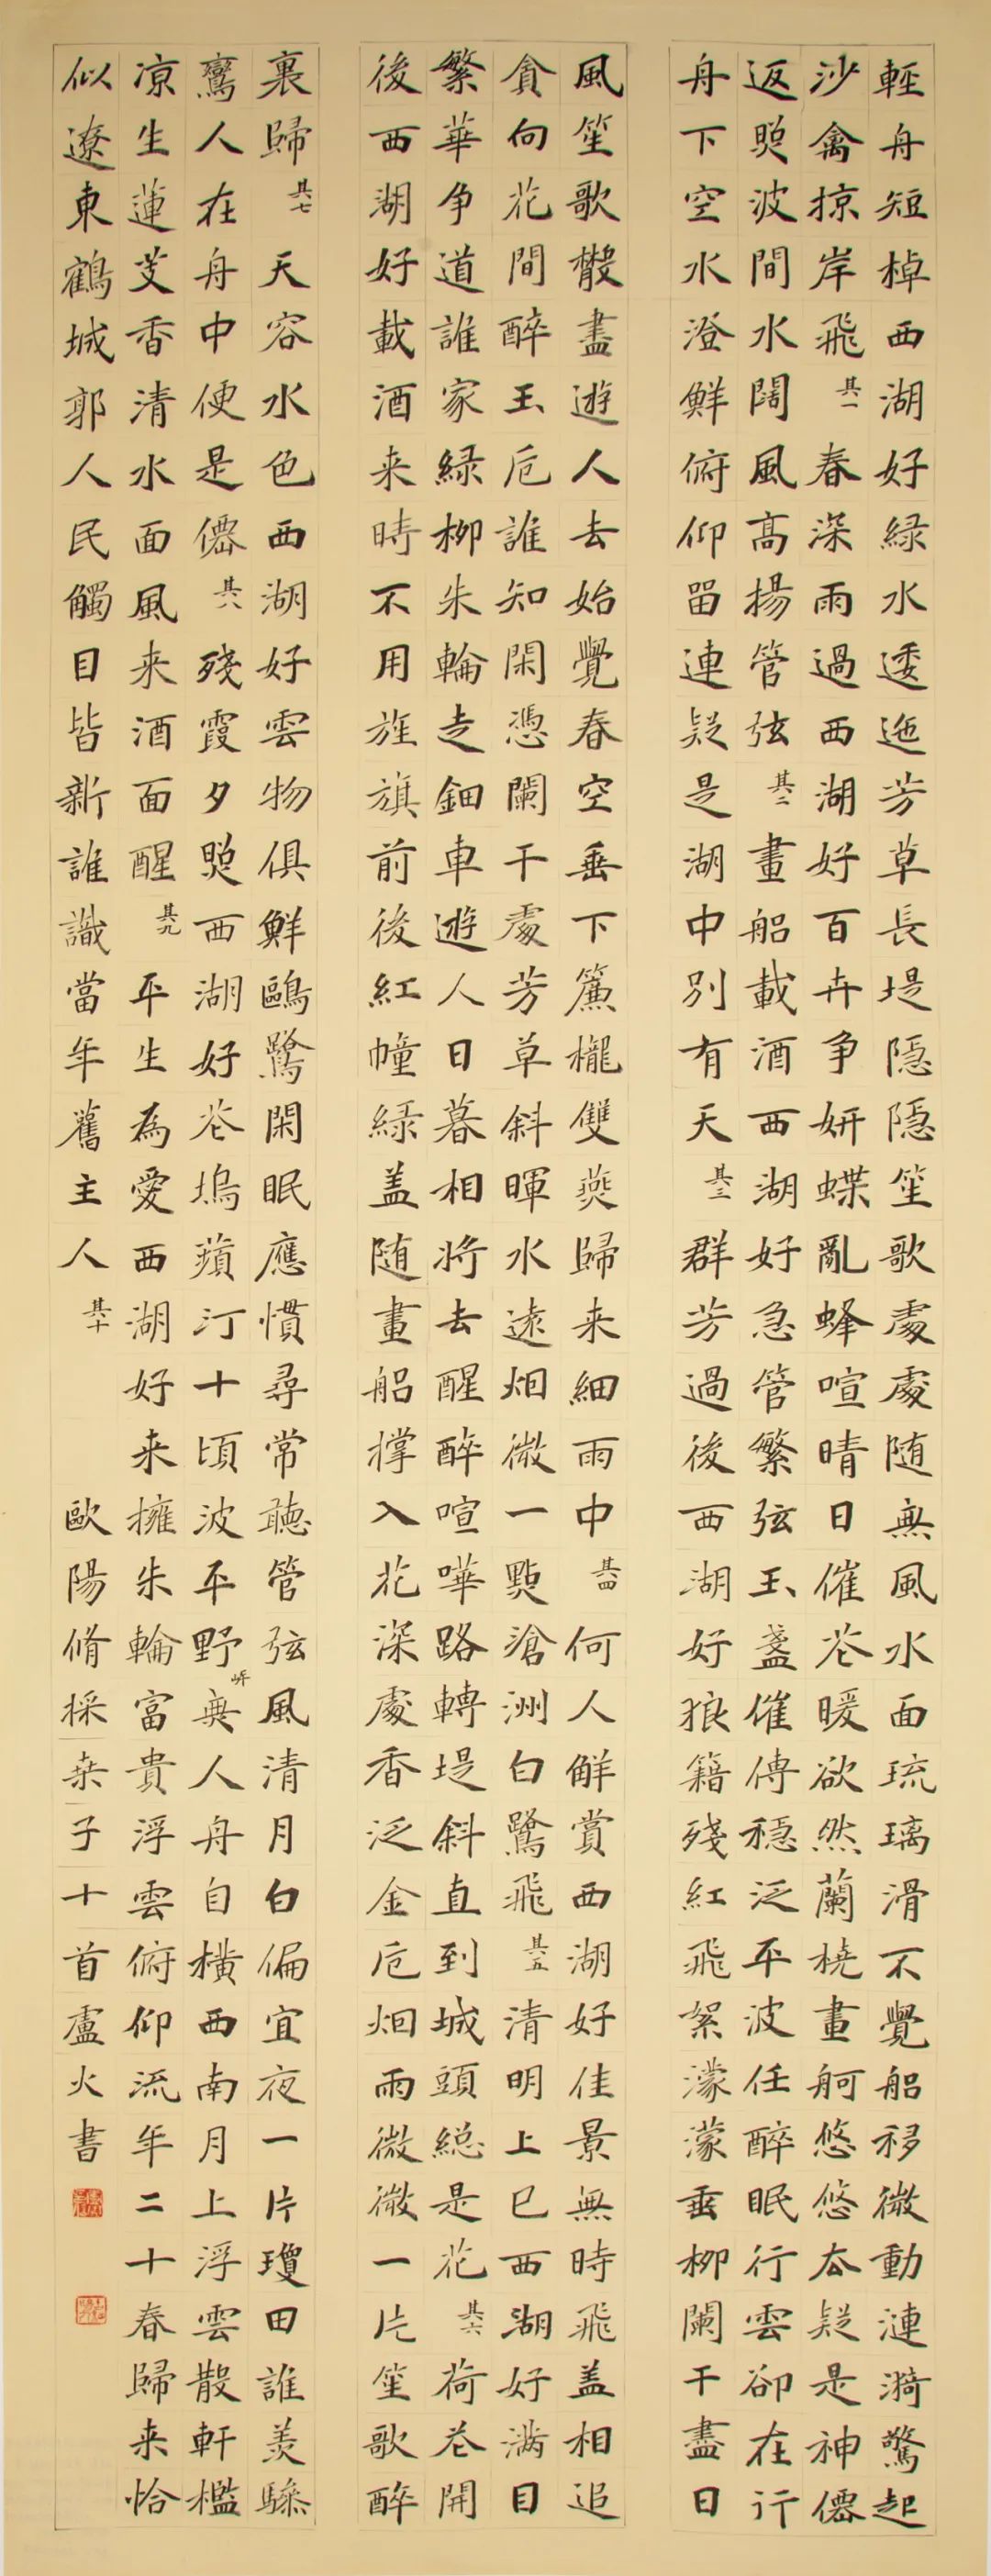 輕舟短棹西湖好綠水逶迤芳草長堤隱隱笙歌處處随無風水面琉璃滑不覺船移微動漣漪驚起
沙禽掠岸飛其一春深雨過西湖好百卉争妍蝶亂蜂喧晴日催花暖欲然蘭橈畫舸悠悠去疑是神僊
返照波間水闊風高揚管弦其二畫船載酒西湖好急管繁弦玉盞催傳穩泛平波任醉眠行雲卻在行
舟下空水澄鮮俯仰留連疑是湖中別有天其三群芳過後西湖好狼籍殘紅飛絮濛濛垂柳闌干盡日
風笙歌散盡遊人去始覺春空垂下簾櫳雙燕歸来細雨中其四何人解賞西湖好佳景無時飛盖相追
貪向花間醉玉卮誰知閑憑闌干處芳草斜暉水遠烟微一點滄洲白鷺飛其五清明上巳西湖好满目
繁華争道誰家緑柳朱輪走鈿車遊人日暮相將去醒醉喧嘩路轉堤斜直到城頭総是花其六荷花開
後西湖好載酒来時不用旌旗前後紅幢緑盖随畫船撑入花深處香泛金卮烟雨微微一片笙歌醉
裏歸其七天容水色西湖好雲物俱鮮鷗鷺閑眠應慣尋常聽管弦風清月白偏宜夜一片瓊田誰羡驂
鸞人在舟中便是僊其八殘霞夕照西湖好花塢蘋汀十頃波平野岸無人舟自横西南月上浮雲散軒檻
凉生蓮芰香清水面風来酒面醒其九平生為愛西湖好来擁朱輪富貴浮雲俯仰流年二十春歸来恰
似遼東鶴城郭人民觸目皆新誰識當年舊主人其十歐陽脩採桒子十首盧火書